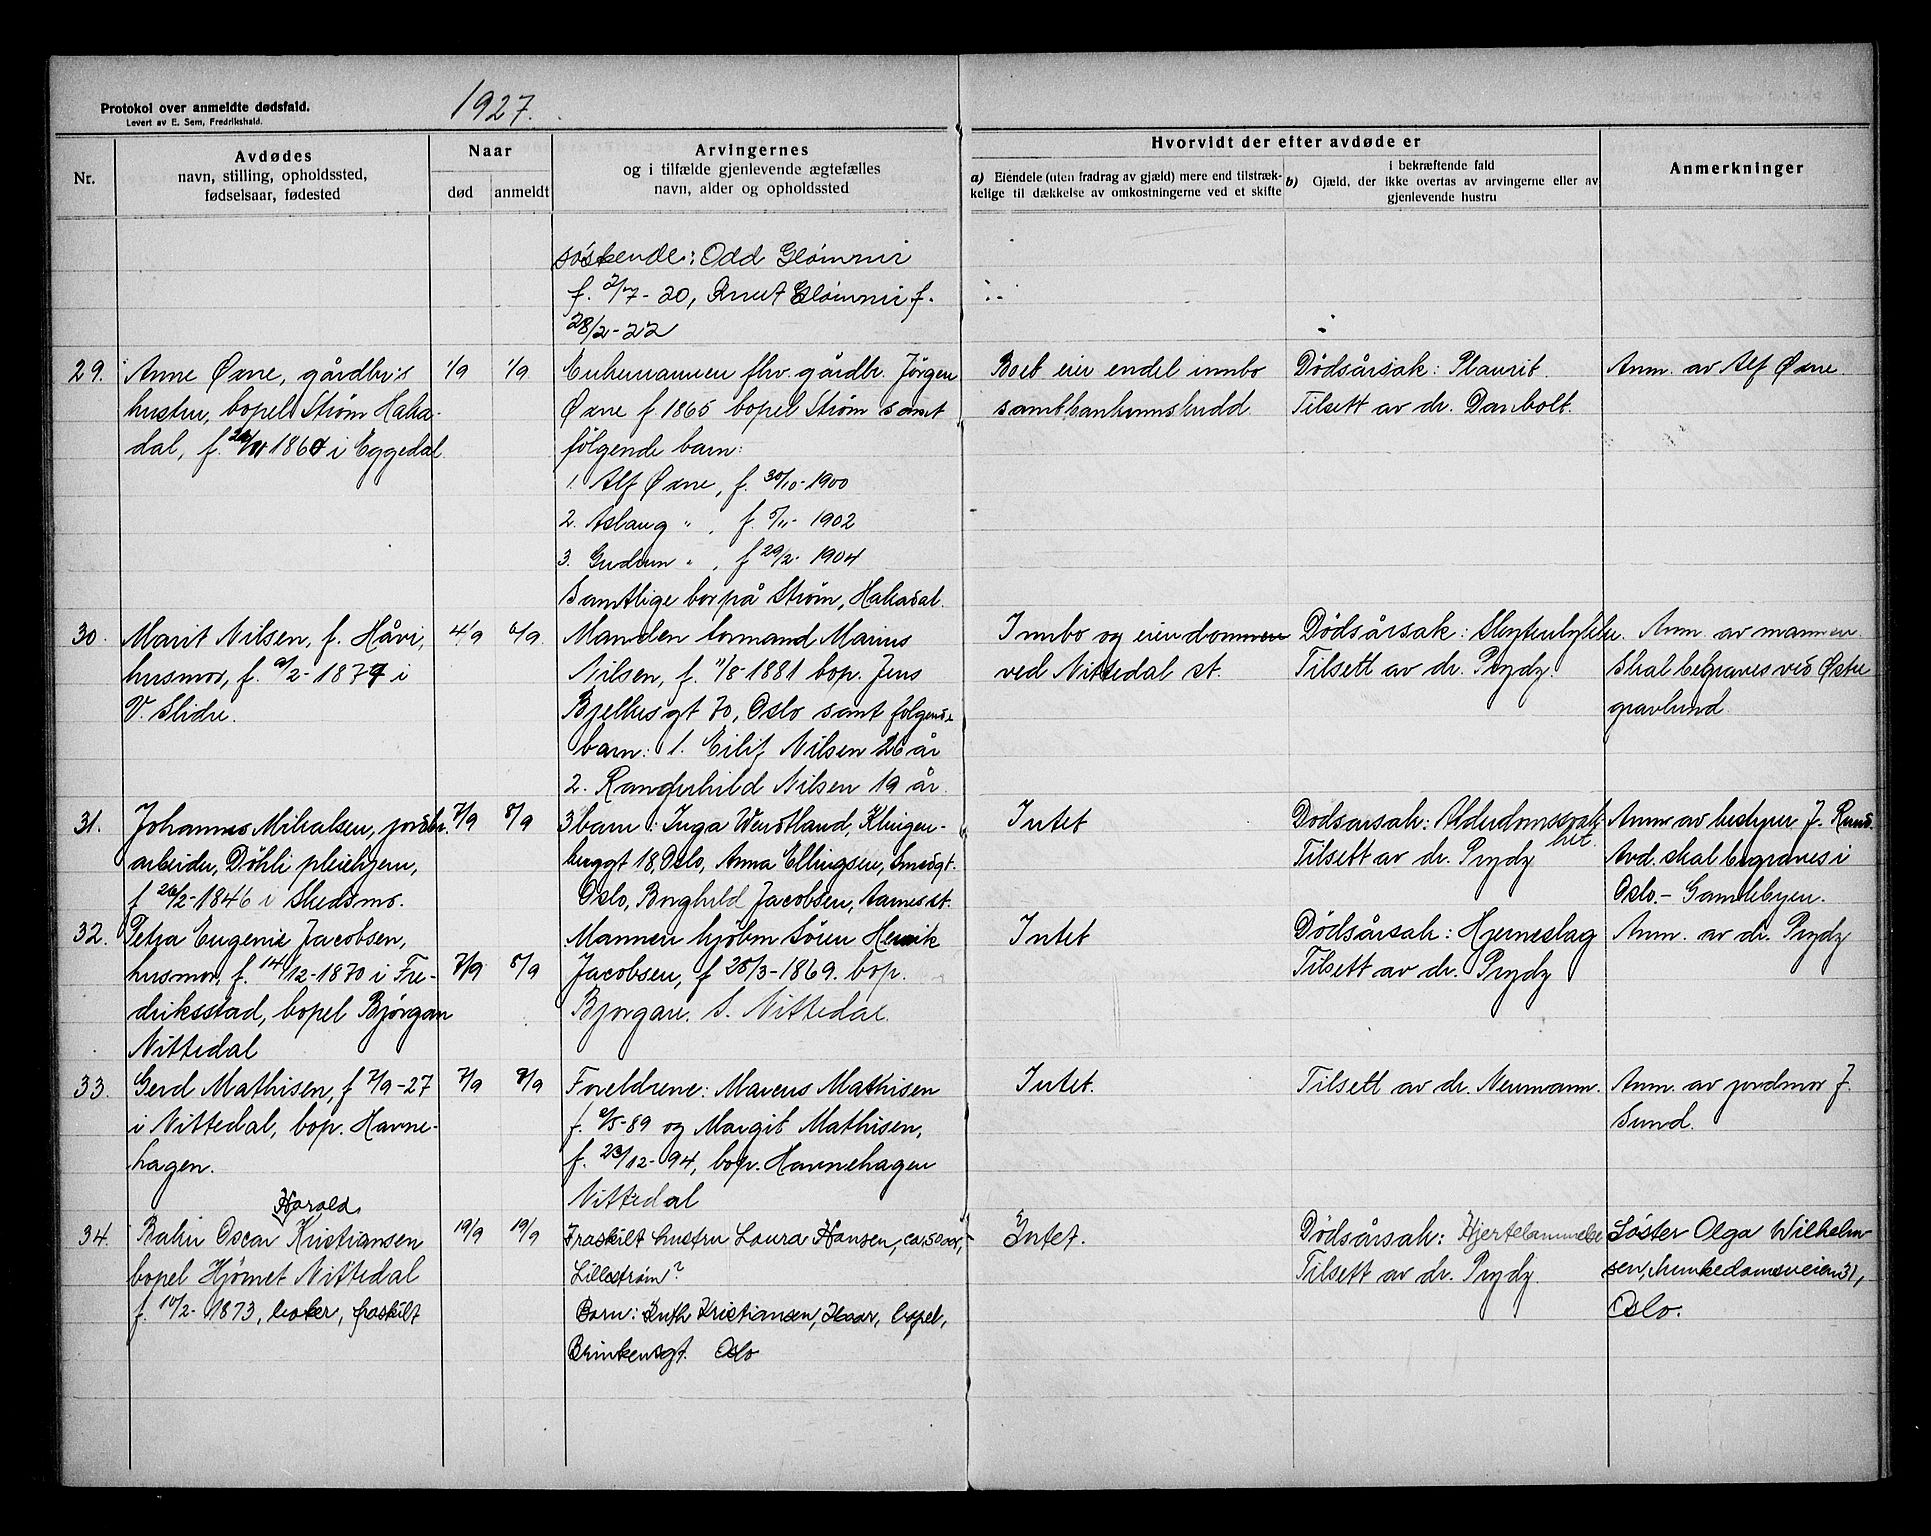 Protokol over anmeldte dødsfald.
Levert av E. Sem, Fredrikshald.
1927.
Nr.
Avdødes
navn, stilling, opholdssted,
fødselsaar, fødested
Naar
død
anmeldt
Arvingernes
og i tilfælde gjenlevende ægtefælles
navn, alder og opholdssted
Hvorvidt der efter avdøde er
a) Eiendele (uten fradrag av gjæld) mere end tilstræk-
kelige til dækkelse av omkostningerne ved et skifte
i bekræftende fald
b) Gjæld, der ikke overtas av arvingerne eller av
gjenlevende hustru
Anmerkninger
søskende: Odd Glømmir
f. 2/7-20, Knut Glømmir f.
28/2-22
29.
Anne Øxne, gårdbr's
hustru, bopel Strøm Haka-
dal, f. 1860 i Eggedal
1/9
1/9
Enkemannen fhv. gårdbr. Jørgen
Øxne f 1865 bopel Strøm samt
følgende barn:
1. Alf Øxne, f. 30/10-1900
2. Aslaug " , f. 5/11- 1902
3. Gudrun " , f 29/2- 1904
Samtlige bor på Strøm, Hakadal.
Boet eier endel innbo
samt bankinnskudd.
Dødsårsak: Plaurit.
Tilsett av dr. Danbolt.
Anm. av Alf Øxne
30.
Marit Nilsen, f. Håvi,
husmor, f. 9/2-1879 i
V. Slidre.
4/9
6/9
Manden formand Marius
Nilsen, f. 11/8-1881 bop. Jens
Bjelkesgt 70, Oslo samt følgende
barn: 1. Eilif Nilsen 26 år
2. Rangderhild Nilsen 19 år.
Innbo og eiendommen
ved Nittedal st.
Dødsårsak:
Tilsett av dr. Prydz.
Anm. av mannen
Skal begraves ved Østre
gravlund.
31.
Johannes Mikalsen, jordbr.
arbeider, Døhli pleiehjem,
f 26/2-1846 i Skedsmo.
7/9
8/9
3 barn: Inga Wendtland, Klingen-
berggt 18, Oslo, Anna Ellingsen, Smedgt.
Oslo, Borghild Jacobsen, Aarnes st.
Intet
Dødsårsak: Alderdomssvak-
het.
Tilsett av dr. Prydz
Anm av bestyrer J. Rund.
Avd. skal begraves i
Oslo.- Gamlebyen.
32.
Petra Eugenie Jacobsen,
husmor, f. 14/12-1870 i Fre-
driksstad, bopel Bjørgan
Nittedal
7/9
8/9
Mannen kjøbm Sören Henrik
Jacobsen, f 28/3-1869. bop.
Bjørgan. S. Nittedal.
Intet
Dødsårsak: Hjerneslag
Tilsett av dr. Prydz
Anm. av dr. Prydz
33.
Gerd Mathisen, f 7/9-27
i Nittedal, bop. Havne-
hagen.
7/9
9/9
Foreldrene: Marcus Mathisen
f. 9/5-89 og Margit Mathisen,
f. 23/12-94, bop. Havnehagen
Nittedal
Intet.
Tilsett av dr. Neumann.
Anm. av jordmor J.
Sund.
34.
Harald
Oscar Kristiansen
bopel Hjørnet Nittedal
f. 10/2-1873, baker, fraskilt
19/9
19/9
Fraskilt hustru Laura Hansen, ca 50 år,
Lillestrøm?
Barn: Ruth Kristiansen, bopel,
Brinkensgt. Oslo
Intet.
Dødsårsak: Hjertelammelse
Tilsett av dr. Prydz.
Søster Olga Wilhelm-
sen, Munkedamsveien 31,
Oslo.